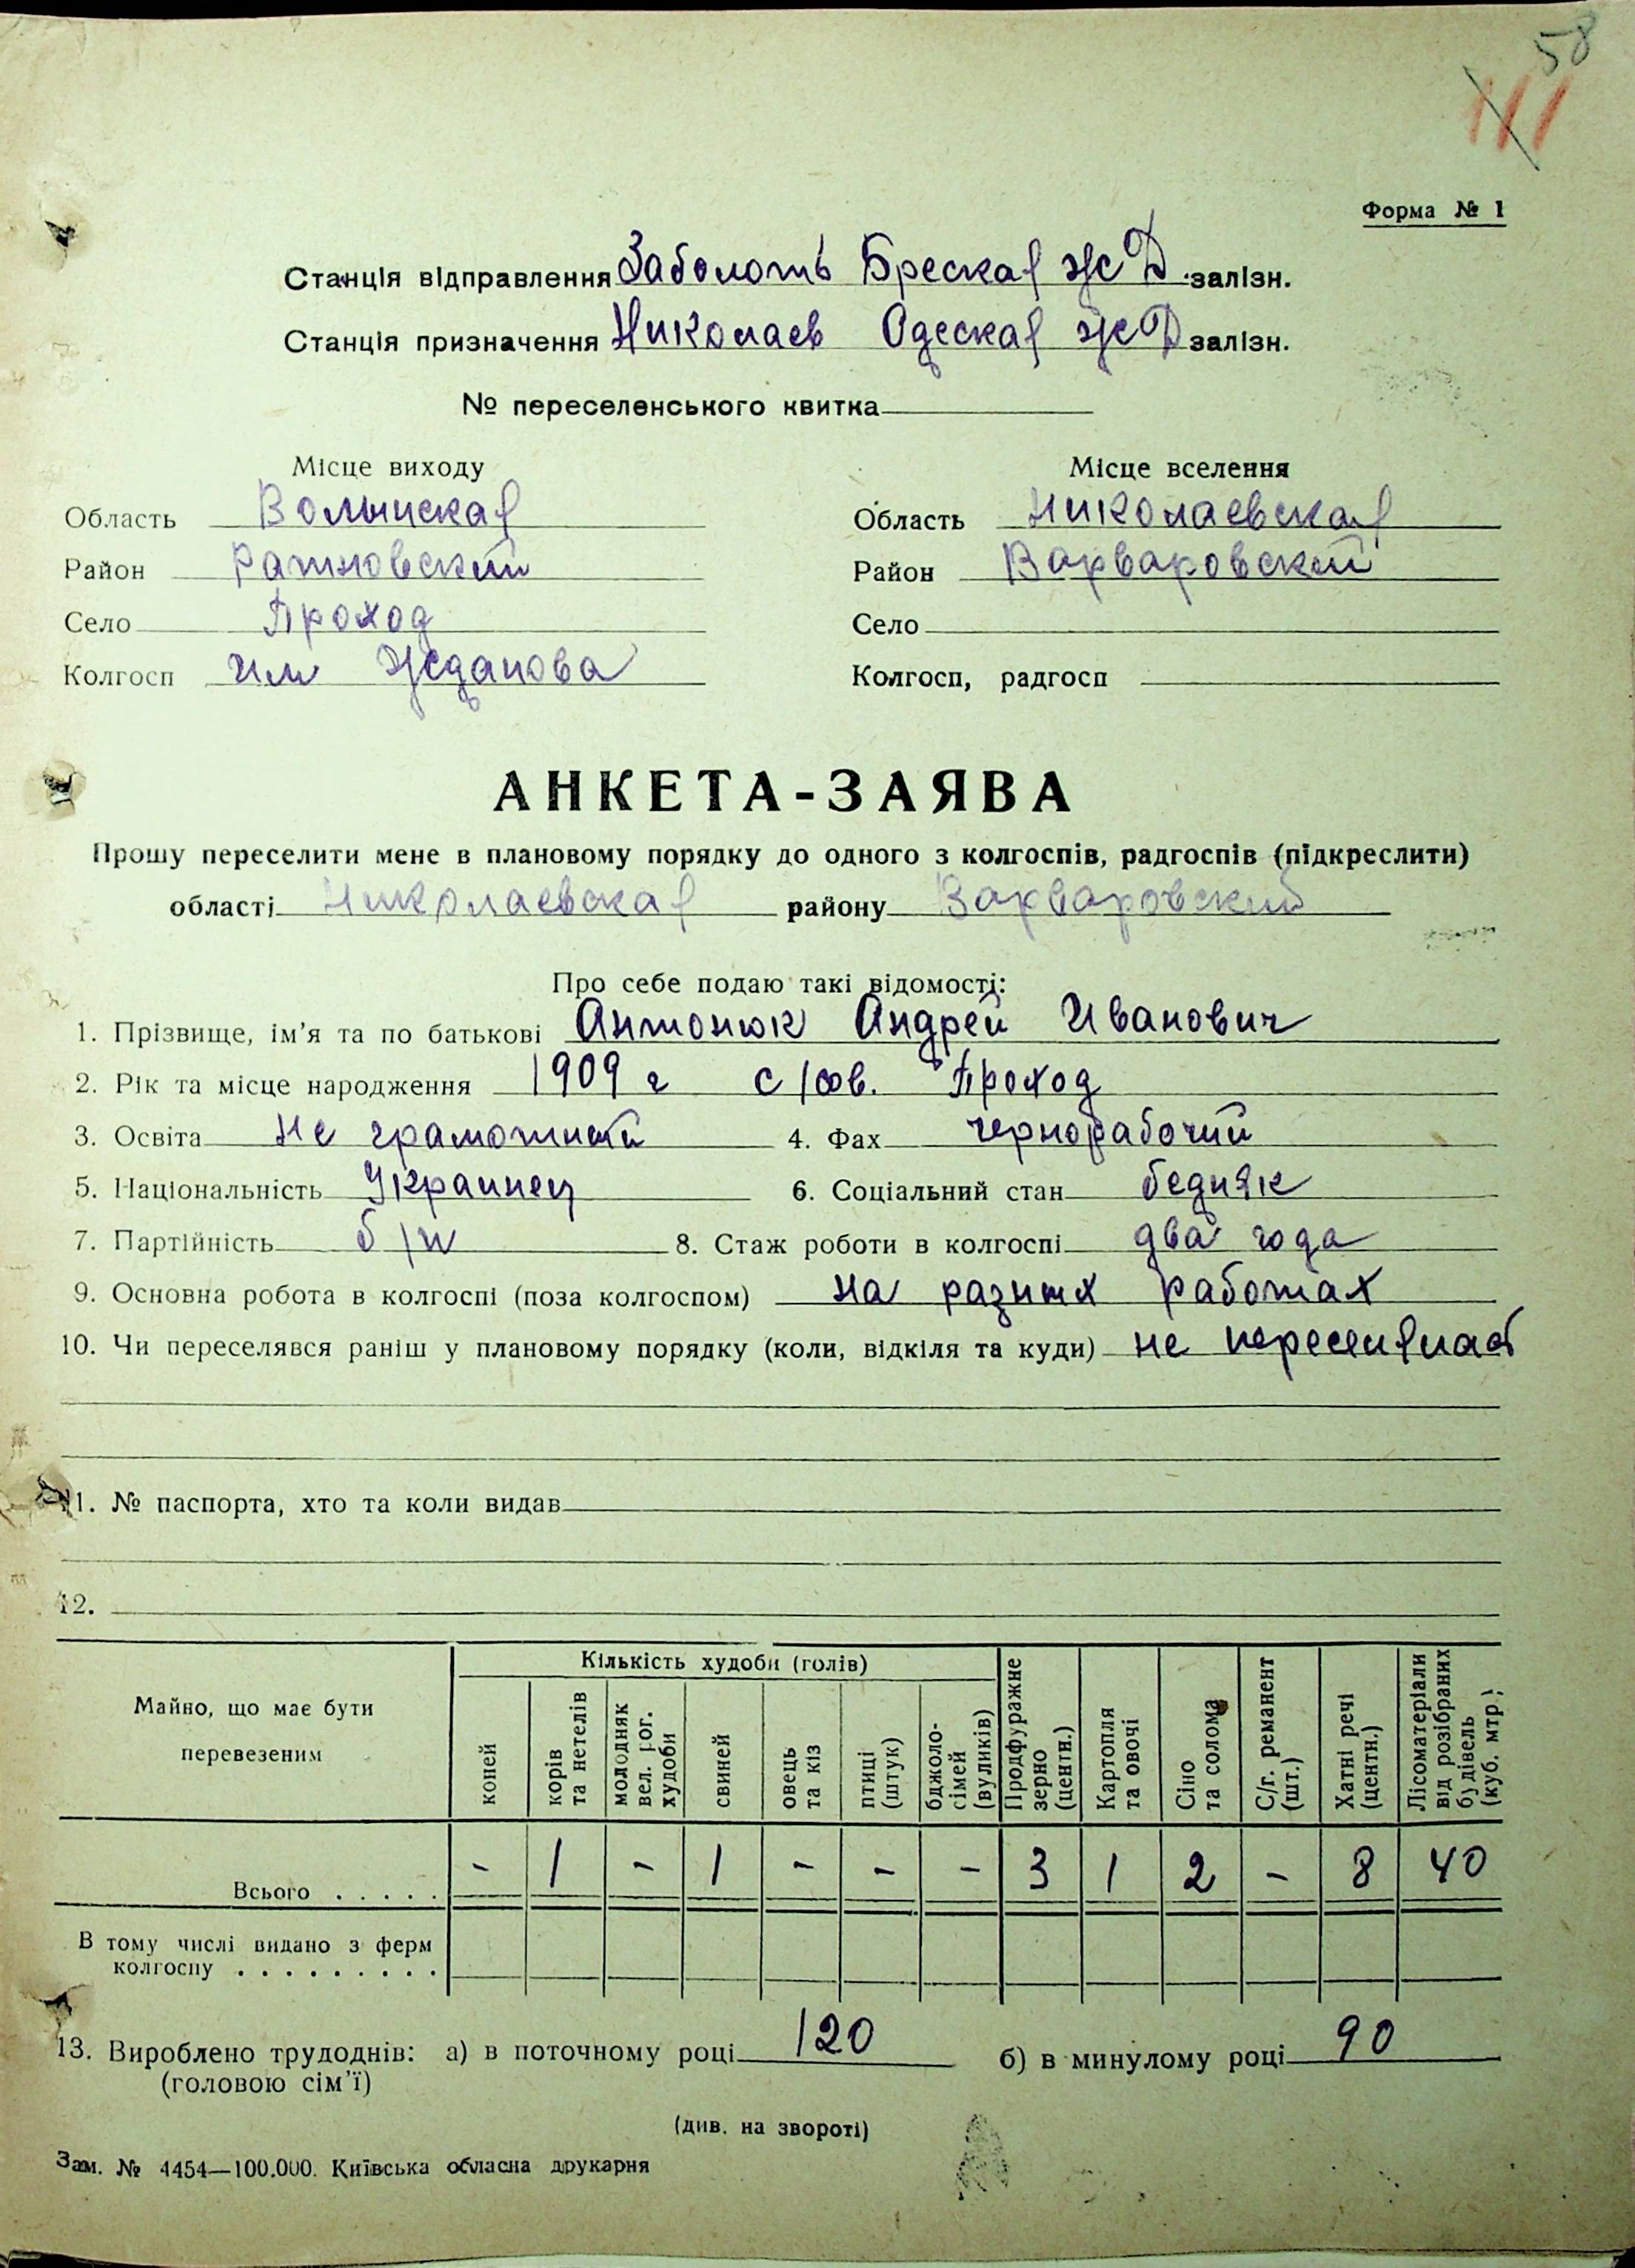 58
111
Форма № 1
Станція відправлення Заболоть Бреская ж Д залізн.
Станція призначення Николаев Одеская ж Д залізн.
№ переселенського квитка
Місце виходу Місце вселення
Область Волынская Область Николаевская
Район Ратновский Район Варваровский
Село Проход Село
Колгосп им Жданова Колгосп, радгосп
АНКЕТА-ЗАЯВА
Прошу переселити мене в плановому порядку до одного з колгоспів, радгоспів (підкреслити)
області Николаевская району Варваровский
Про себе подаю такі відомості:
1. Прізвище, ім'я та по батькові Антонюк Андрей Иванович
2. Рік та місце народження 1909 г с/сов. Проход
3. Освіта не грамотный 4. Фах чернорабочий
5. Національність Украинец 6. Соціальний стан бедняк
7. Партійність б/п 8. Стаж роботи в колгоспі два года
9. Основна робота в колгоспі (поза колгоспом) на разных работах
10. Чи переселявся раніш у плановому порядку (коли, відкіля та куди) не
11. № паспорта, хто та коли видав
12.
Майно, що має бути перевезеним
Кількість худоби (голів)
коней
корів та нетелів
молодняк вел. рог. худоби
свиней
овець та кіз
птиці (штук)
бджоло-сімей (вуликів)
Продфуражне зерно (центн.)
Картопля та овочі
Сіно та солома
С/г. реманент (шт.)
Хатні речі (центн.)
Лісоматеріали від розібраних будівель (куб. мтр)
Всього . . . . . - 1 - 1 - - - 3 1 2 - 8 40
В тому числі видано з ферм
колгоспу . . . . . . . . .
13. Вироблено трудоднів: а) в поточному році 120 б) в минулому році 90
(головою сім'ї)
(див. на звороті)
Зам. № 4454—100.000. Київська обласна друкарня